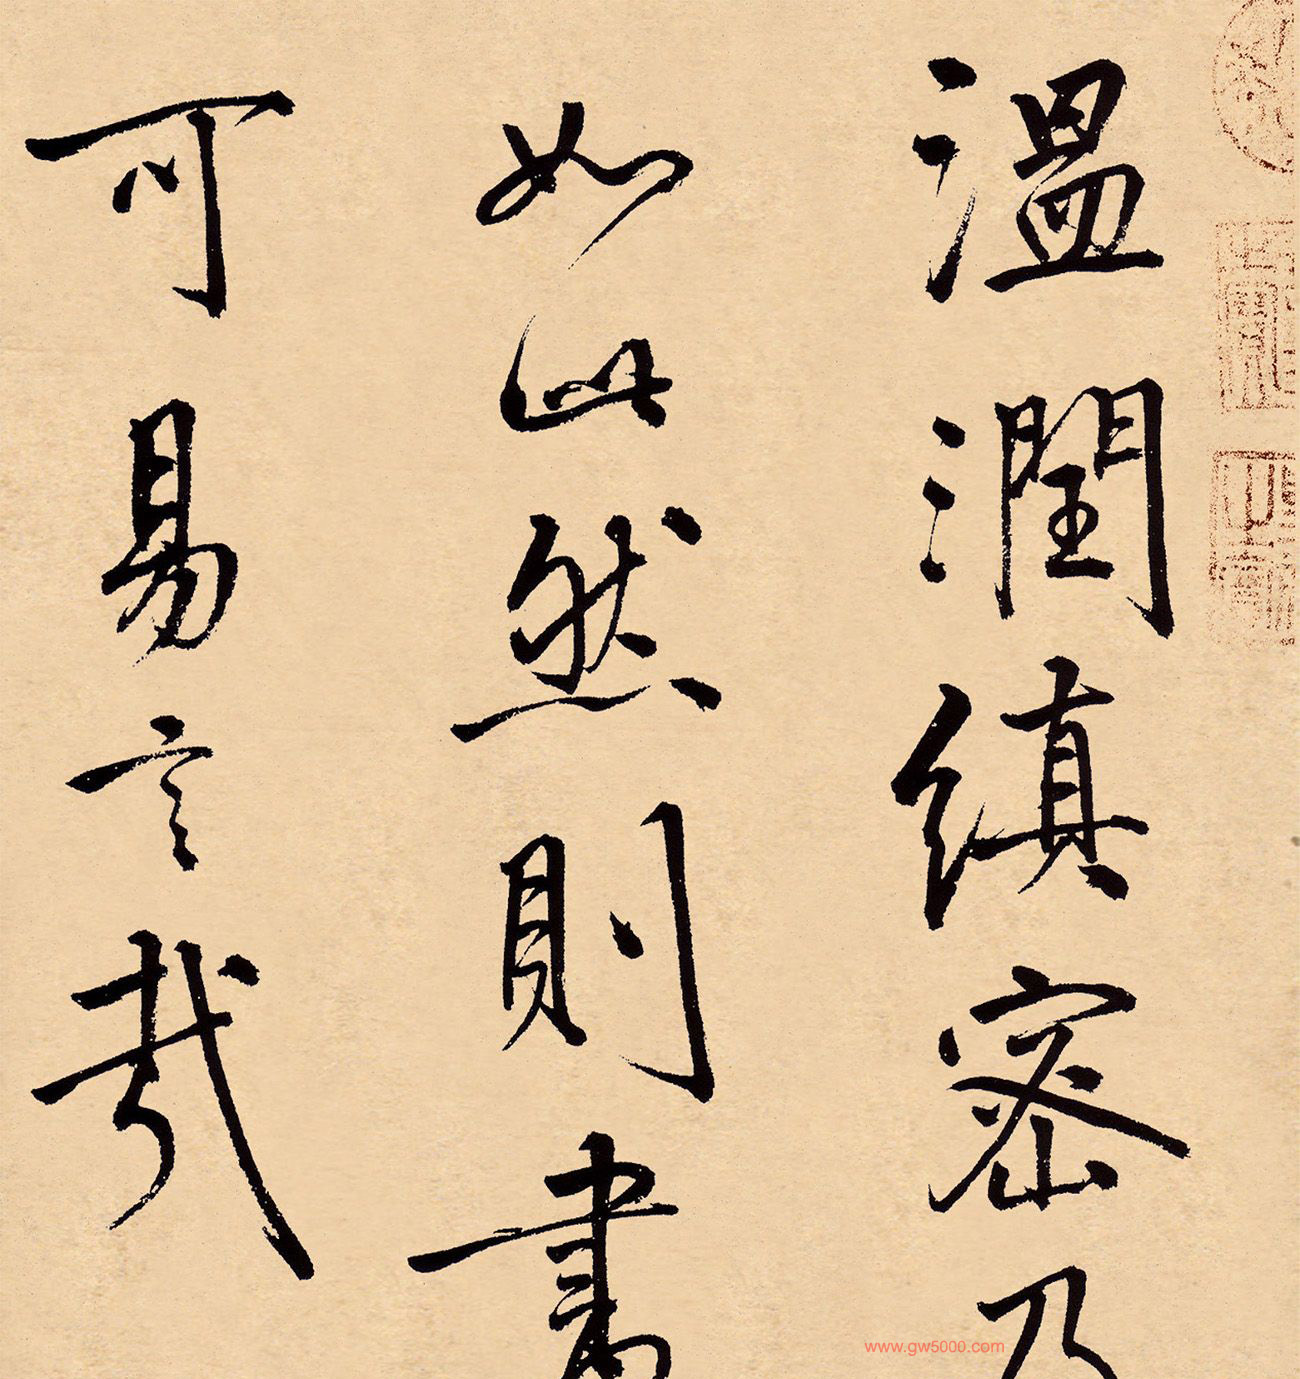 溫潤縝密乃
如此然則書
可易言哉
www.gw5000.com